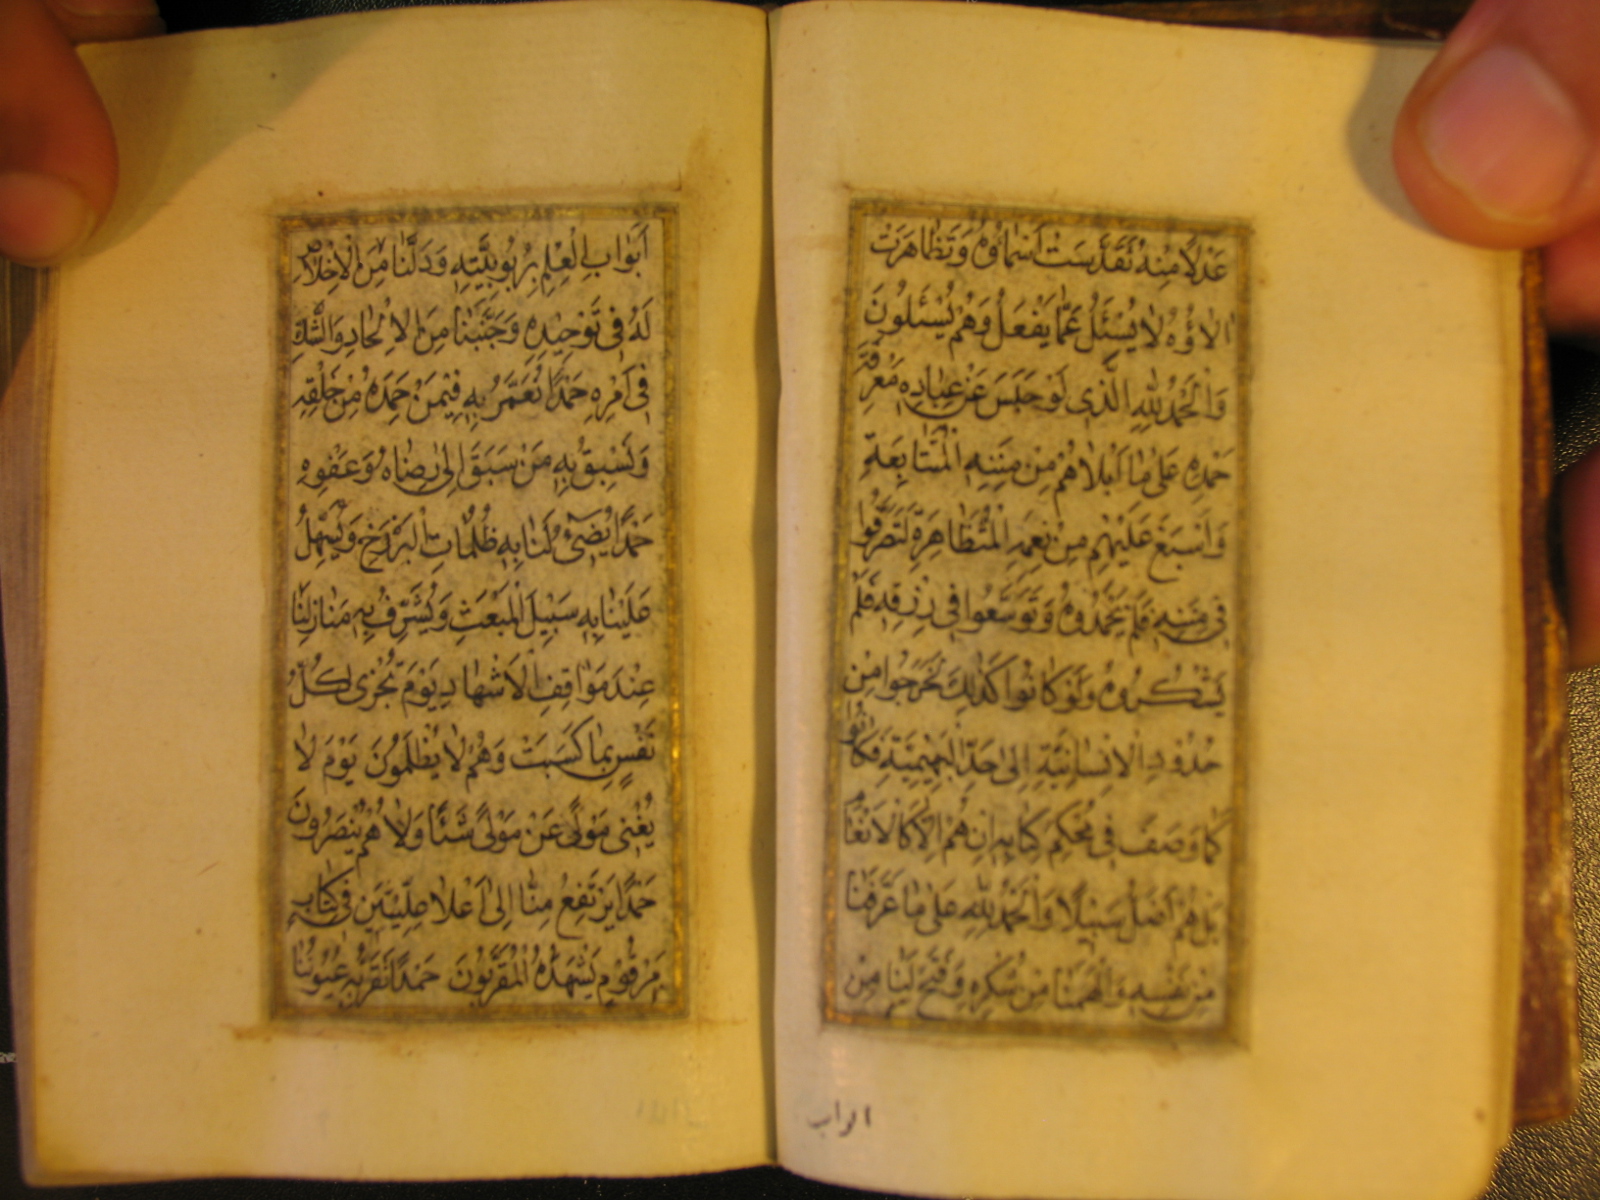 عَدْلًا مِنْهُ تَقَدَّسَتْ اَسْمَاؤُهُ وَتَظَاهَرَتْ
الَاؤُهُ لَا يُسْئَلُ عَمَّا يَفْعَلُ وَهُمْ يُسْئَلُونَ
وَالْحَمْدُ لِلّٰهِ الَّذِى لَوْ حَبَسَ عَنْ عِبَادِهِ مَعْرِفَةَ
حَمْدِهِ عَلٰى مَا اَبْلَاهُمْ مِنْ مِنَنِهِ الْمُتَتَابِعَةِ
وَاَسْبَغَ عَلَيْهِمْ مِنْ نِعَمِهِ الْمُتَظَاهِرَةِ لَتَصَرَّفُوا
فِى مِنَنِهِ فَلَمْ يَحْمَدُوهُ وَتَوَسَّعُوا فِى رِزْقِهِ فَلَمْ
يَشْكُرُوهُ وَلَوْ كَانُوا كَذٰلِكَ لَخَرَجُوا مِنْ
حُدُودِ الْاِنْسَانِيَّةِ اِلٰى حَدِّ الْبَهِيمِيَّةِ فَكَانُوا
كَمَا وَصَفَ فِى مُحْكَمِ كِتَابِهِ اِنْ هُمْ اِلَّا كَالْاَنْعَامِ
بَلْ هُمْ اَضَلُّ سَبِيلًا وَالْحَمْدُ لِلّٰهِ عَلٰى مَا عَرَّفَنَا
مِنْ نَفْسِهِ وَاَلْهَمَنَا مِنْ شُكْرِهِ وَفَتَحَ لَنَا مِنْ
ابواب
اَبْوَابِ الْعِلْمِ بِرُبُوبِيَّتِهِ وَدَلَّنَا مِنَ الْاِخْلَاصِ
لَهُ فِى تَوْحِيدِهِ وَجَنَّبَنَا مِنَ الْاِلْحَادِ وَالشَّكِّ
فِى اَمْرِهِ حَمْدًا نُعَمَّرُ بِهِ فِيمَنْ حَمِدَهُ مِنْ خَلْقِهِ
وَنَسْبِقُ بِهِ مَنْ سَبَقَ اِلٰى رِضَاهُ وَعَفْوِهِ
حَمْدًا يُضِىءُ لَنَا بِهِ ظُلُمَاتِ الْبَرْزَخِ وَيُسَهِّلُ
عَلَيْنَا بِهِ سَبِيلَ الْمَبْعَثِ وَيُشَرِّفُ بِهِ مَنَازِلَنَا
عِنْدَ مَوَاقِفِ الْاَشْهَادِ يَوْمَ تُجْزٰى كُلُّ
نَفْسٍ بِمَا كَسَبَتْ وَهُمْ لَا يُظْلَمُونَ يَوْمَ لَا
يُغْنِى مَوْلًى عَنْ مَوْلًى شَيْئًا وَلَا هُمْ يُنْصَرُونَ
حَمْدًا يَرْتَفِعُ مِنَّا اِلٰى اَعْلَا عِلِّيِّينَ فِى كِتَابٍ
مَرْقُومٍ يَشْهَدُهُ الْمُقَرَّبُونَ حَمْدًا تَقَرُّ بِهِ عُيُونُنَا